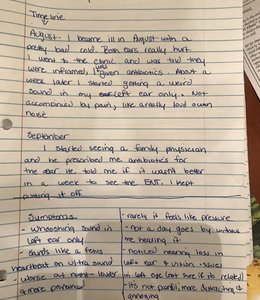 Timeline
August - I became ill in August with a
pretty bad cold. Both ears really hurt.
I went to the clinic and was told they
were inflamed, I was given antibiotics. About a
week later I started getting a weird
sound in my ear left ear only. Not
accompanied by pain, like a really loud
noise
September
I started seeing a family physician
and he prescribed me antibiotics for
the ear. He told me if it wasn't better
in a week to see the ENT. I kept
putting it off.
Symptoms
- Whooshing sound in
left ear only
- Sounds like a fetus
heartbeat on ultra sound
- Worse at night - louder
& more pronounced
- rarely it feels like pressure
- not a day goes by without
me hearing it
- noticed hearing loss in
left ear & vision issues
in left eye (not sure if its related)
- It's not painful, more distracting &
annoying